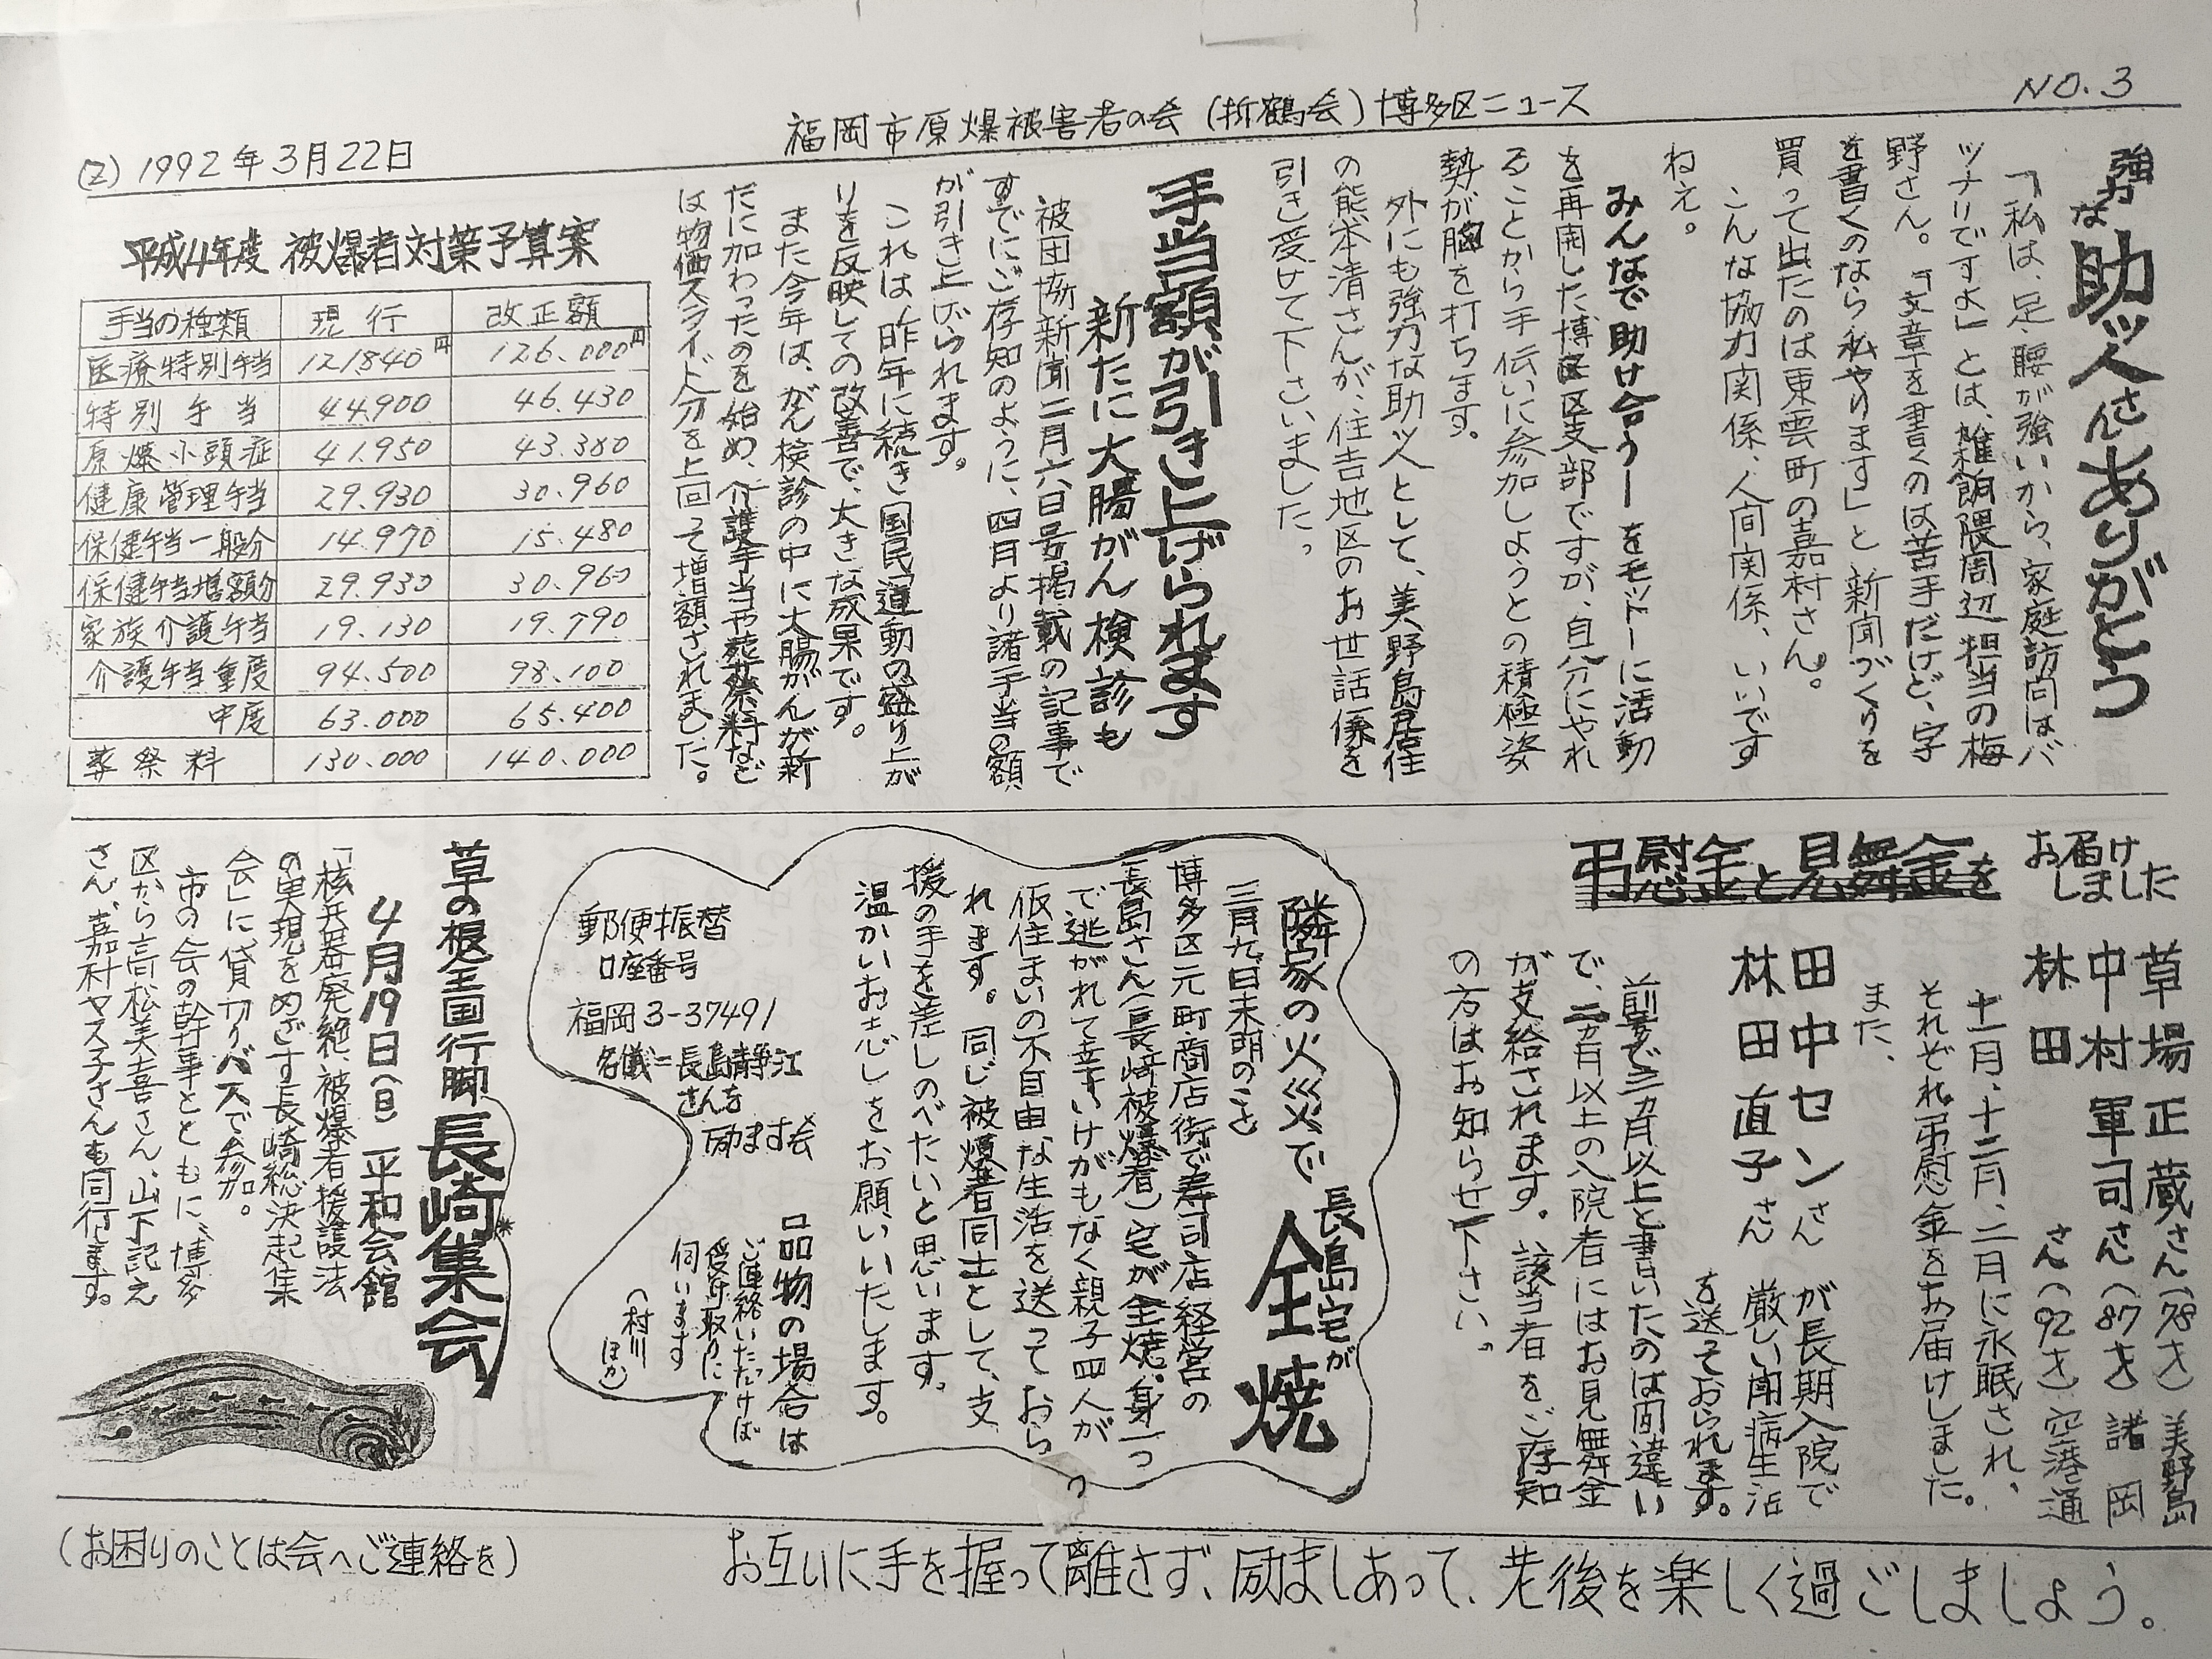 NO.3
福岡市原爆被害者の会(折鶴会)博多区ニュース
(2) 1992年3月22日
強力な助ッ人さんありがとう
「私は、足・腰が強いから、家庭訪問はバ
ッチリですよ」とは、雑餉隈周辺担当の梅
野さん。「文章を書くのは苦手だけど、字
を書くのなら私やります」と新聞づくりを
買って出たのは東雲町の嘉村さん。
こんな協力関係、人間関係、いいです
ねえ。
みんなで助け合うーをモットーに活動
を再開した博多区支部ですが、自分にやれ
ることから手伝いに参加しようとの積極姿
勢が胸を打ちます。
外にも強力な助ッ人として、美野島居住
の熊本清さんが、住吉地区のお世話係を
引き受けて下さいました。
手当額が引き上げられます
新たに大腸がん検診も
被団協新聞二月六日号掲載の記事で
すでにご存知のように、四月より諸手当の額
が引き上げられます。
これは、昨年に続き国民運動の盛り上が
りを反映しての改善で、大きな成果です。
また今年は、がん検診の中に大腸がんが新
たに加わったのを始め、介護手当や葬祭料など
は物価スライド分を上回って増額されました。
平成4年度 被爆者対策予算案
手当の種類 現行 改正額
医療特別手当 121840円 126.000円
特別手当 44.900 46.430
原爆小頭症 41.950 43.380
健康管理手当 29.930 30.960
保健手当一般分 14.970 15.480
保健手当増額分 29.930 30.960
家族介護手当 19.130 19.790
介護手当重度 94.500 98.100
中度 63.000 65.400
葬祭料 130.000 140.000
弔慰金と見舞金を
お届けしました
草場正蔵さん(78才)美野島
中村軍司さん(87才)諸岡
林田 さん(92才)空港通
十一月、十二月、二月に永眠され、
それぞれ弔慰金をお届けしました。
また、
田中センさん
林田直子さん
が長期入院で
厳しい闘病生活
を送っておられます。
前号で三カ月以上と書いたのは間違い
で、二カ月以上の入院者にはお見舞金
が支給されます。該当者をご存知
の方はお知らせ下さい。
隣家の火災で
長島宅が
全焼
三月九日未明のこと
博多区元町商店街で寿司店経営の
長島さん(長崎被爆者)宅が全焼、身一つ
で逃がれて幸いけがもなく親子四人が
仮住まいの不自由な生活を送っておら
れます。同じ被爆者同士として、支
援の手を差しのべたいと思います。
温かいお志しをお願いいたします。
品物の場合は
ご連絡いただけば
受け取りに
伺います
(村川
ほか)
郵便振替
口座番号
福岡3-37491
名儀=長島静江
さんを
励ます会
草の根全国行脚 長崎集会
4月19日(日)平和会館
「核兵器廃絶、被爆者援護法
の実現をめざす長崎総決起集
会」に貸切りバスで参加。
市の会の幹事とともに、博多
区から高松美喜さん、山下記え
さん、嘉村ヤス子さんも同行します。
お互いに手を握って離さず、励ましあって、老後を楽しく過ごしましょう。
(お困りのことは会へご連絡を)